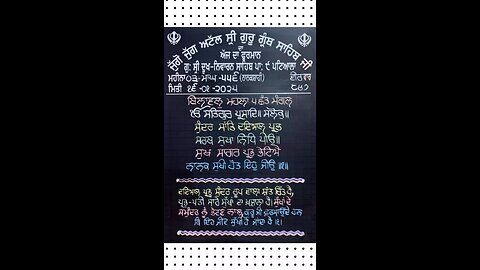 ਜੁੱਗੋ ਜੁੱਗ ਅਟੱਲ ਸ੍ਰੀ ਗੁਰੂ ਗ੍ਰੰਥ ਸਾਹਿਬ ਜੀ
ਦਾ
ਅੱਜ ਦਾ ਫੁਰਮਾਨ
ਗੁ: ਸ੍ਰੀ ਦੁਖ-ਨਿਵਾਰਨ ਸਾਹਿਬ ਪਾ: ੯ ਪਟਿਆਲਾ
ਮਹੀਨਾ ੦੩-ਮਾਘ-੫੫੬ (ਨਾਨਕਸ਼ਾਹੀ) ਵਾਰ
ਮਿਤੀ ੧੬-੦੧-੨੦੨੫
ਬਿਲਾਵਲੁ ਮਹਲਾ ੫ ਛੰਤ ਮੰਗਲੁ
ੴ ਸਤਿਗੁਰ ਪ੍ਰਸਾਦਿ॥ ਸਲੋਕੁ॥
ਸੁੰਦਰ ਸਾਂਤਿ ਦਇਆਲ ਪ੍ਰਭ
ਸਰਬ ਸੁਖਾ ਨਿਧਿ ਪੀਉ॥
ਸੁਖ ਸਾਗਰ ਪ੍ਰਭ ਭੇਟਿਐ
ਨਾਨਕ ਸੁਖੀ ਹੋਤ ਇਹੁ ਜੀਉ ॥੧॥
ਦਇਆਲ ਪ੍ਰਭੂ ਸੁੰਦਰ ਰੂਪ ਵਾਲਾ ਸ਼ਾਂਤ ਚਿੱਤ ਹੈ,
ਪ੍ਰਭੂ-ਪਤੀ ਸਾਰੇ ਸੁੱਖਾਂ ਦਾ ਖ਼ਜ਼ਾਨਾ ਹੈ। ਸੁੱਖਾਂ ਦੇ
ਸਮੁੰਦਰ ਨੂੰ ਭੇਟਣ ਨਾਲ, ਗੁਰੂ ਜੀ ਫੁਰਮਾਉਂਦੇ ਹਨ
ਕਿ ਇਹ ਜੀਵ ਸੁੱਖੀ ਹੋ ਜਾਂਦਾ ਹੈ ।੧।